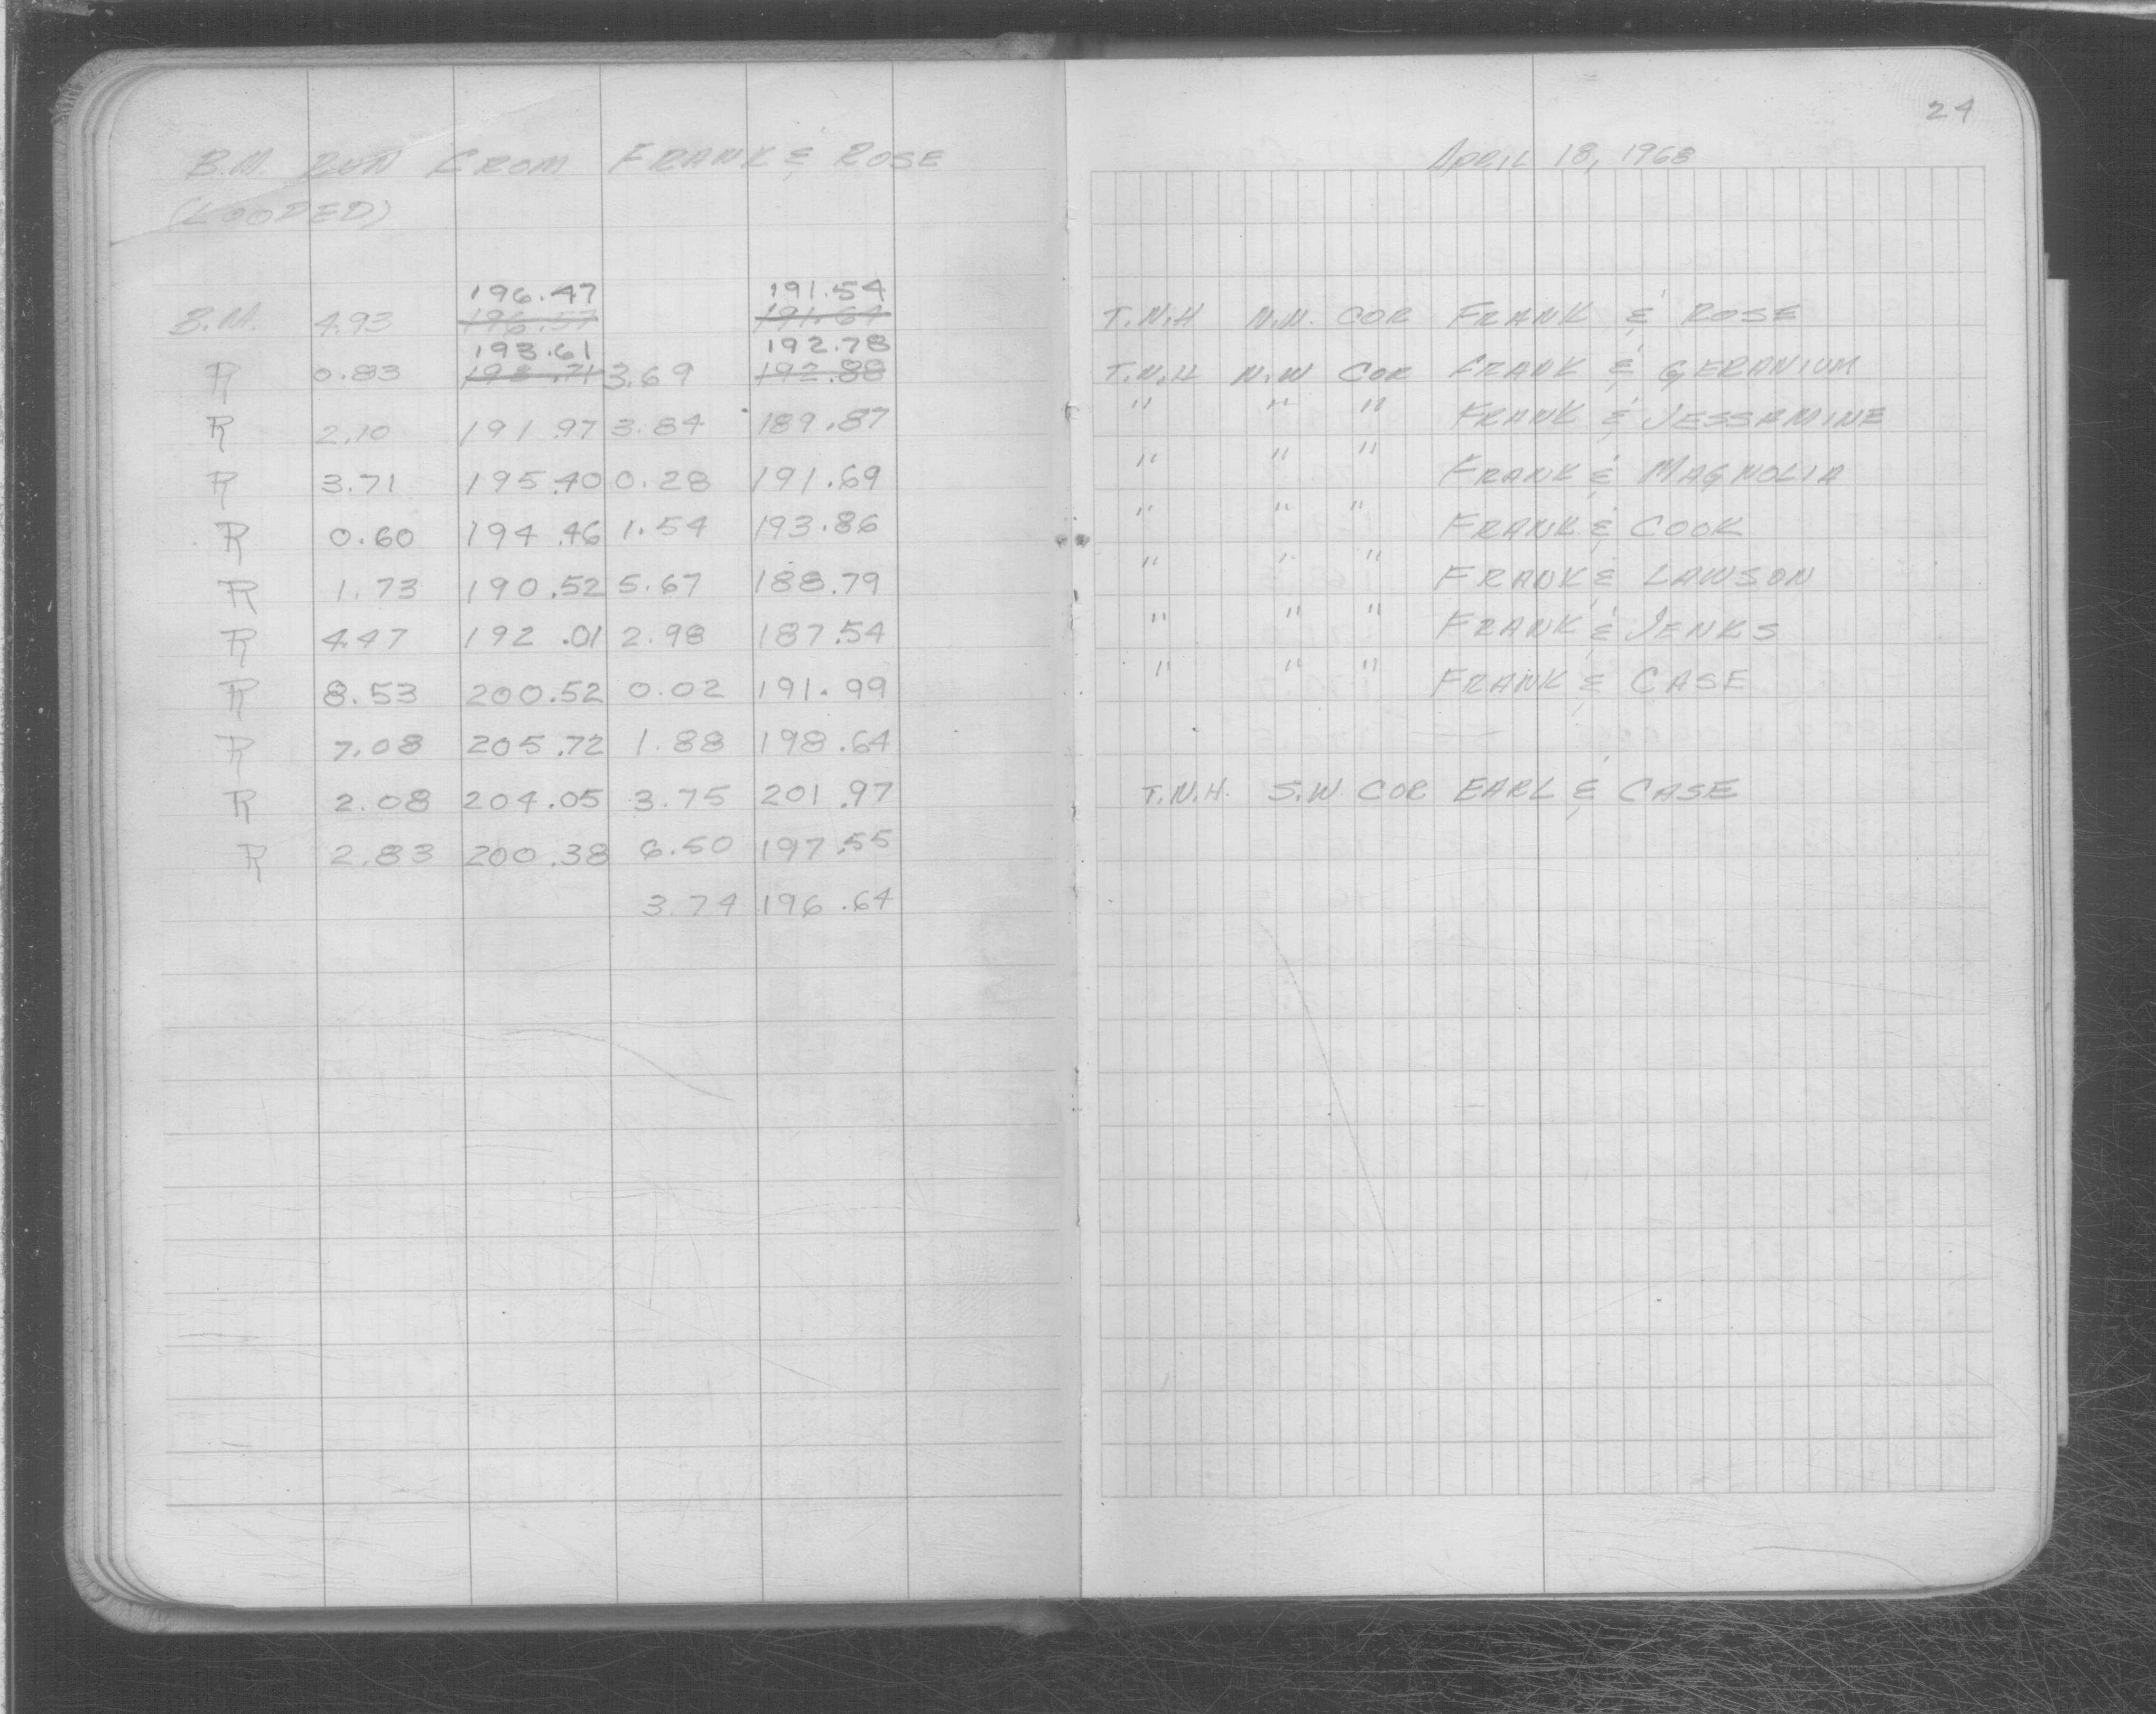 24
B.M. RUN FROM FRANK & ROSE
April 18, 1968
(LOOPED)
196.47 191.54
B.M. 4.93 196.57 191.64 T.N.H N.W. COR FRANK & ROSE
193.61 192.78
R 0.83 193.71 3.69 192.88 T.N.H N.W COR FRANK & GERANIUM
R 2.10 191.97 3.84 189.87 " " " FRANK & JESSAMINE
R 3.71 195.40 0.28 191.69 " " " FRANK & MAGNOLIA
R 0.60 194.46 1.54 193.86 " " " FRANK & COOK
R 1.73 190.52 5.67 188.79 " " " FRANK & LAWSON
R 4.47 192.01 2.98 187.54 " " " FRANK & JENKS
R 8.53 200.52 0.02 191.99 " " " FRANK & CASE
R 7.08 205.72 1.88 198.64
R 2.08 204.05 3.75 201.97 T.N.H. S.W. COR EARL & CASE
R 2.83 200.38 6.50 197.55
3.74 196.64